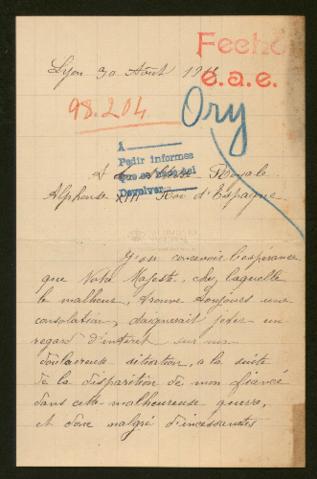 Fecho
e.a.e.
Lyon 30 Août 191
98.204
Ory
A
Pedir informes
Que se hará así
Devolver
A Royale
Alphonse XIII Roi d'Espagne
J'ose concevoir l'espérance
que Votre Majesté, chez laquelle
le malheur, trouve toujours une
consolation, daignerait jeter un
regard d'intérêt sur ma
douloureuse situation, a la suite
de la disparition de mon fiancé
dans cette malheureuse guerre,
et dont malgré d'incessantes